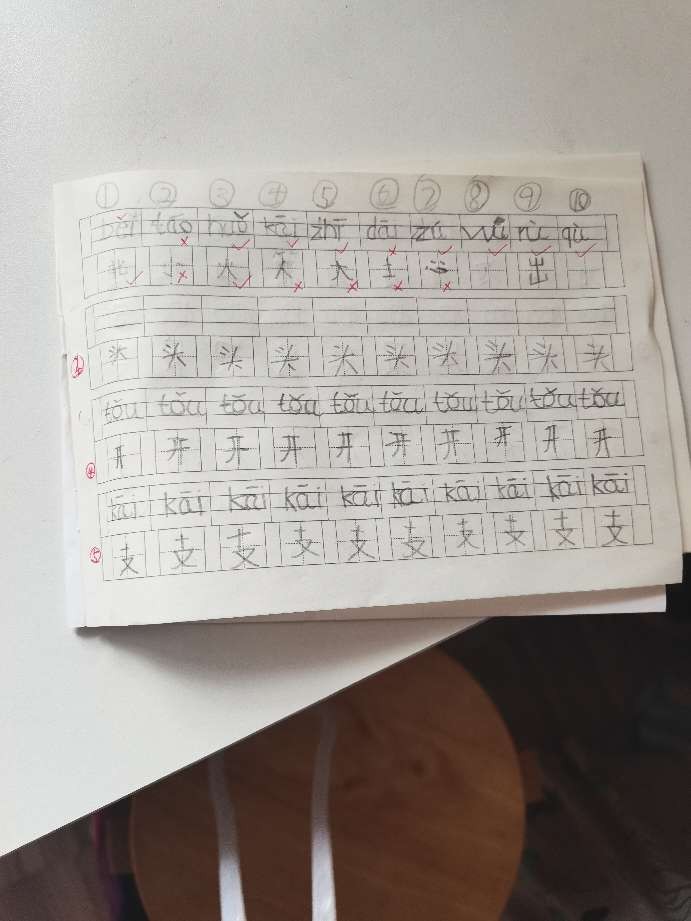 ① ② ③ ④ ⑤ ⑥ ⑦ ⑧ ⑨ ⑩
běi tāo huǒ kāi zhī dāi rù qù
火 大 土 出
头 头 头 头 头 头 头 头 头 头
tǒu tǒu tǒu tǒu tǒu tǒu tǒu tǒu tǒu tǒu
④ 开 开 开 开 开 开 开 开 开 开
kāi kāi kāi kāi kāi kāi kāi kāi kāi kāi
⑤ 支 支 支 支 支 支 支 支 支 支